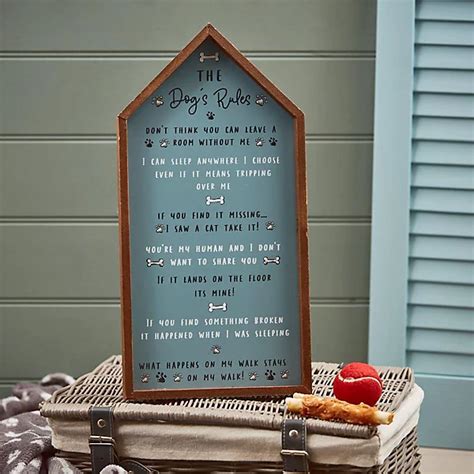 THE
Dog's Rules
DON'T THINK YOU CAN LEAVE A
ROOM WITHOUT ME
I CAN SLEEP ANYWHERE I CHOOSE
EVEN IF IT MEANS TRIPPING
OVER ME
IF YOU FIND IT MISSING...
I SAW A CAT TAKE IT!
YOU'RE MY HUMAN AND I DON'T
WANT TO SHARE YOU
IF IT LANDS ON THE FLOOR
ITS MINE!
IF YOU FIND SOMETHING BROKEN
IT HAPPENED WHEN I WAS SLEEPING
WHAT HAPPENS ON MY WALK STAYS
ON MY WALK!